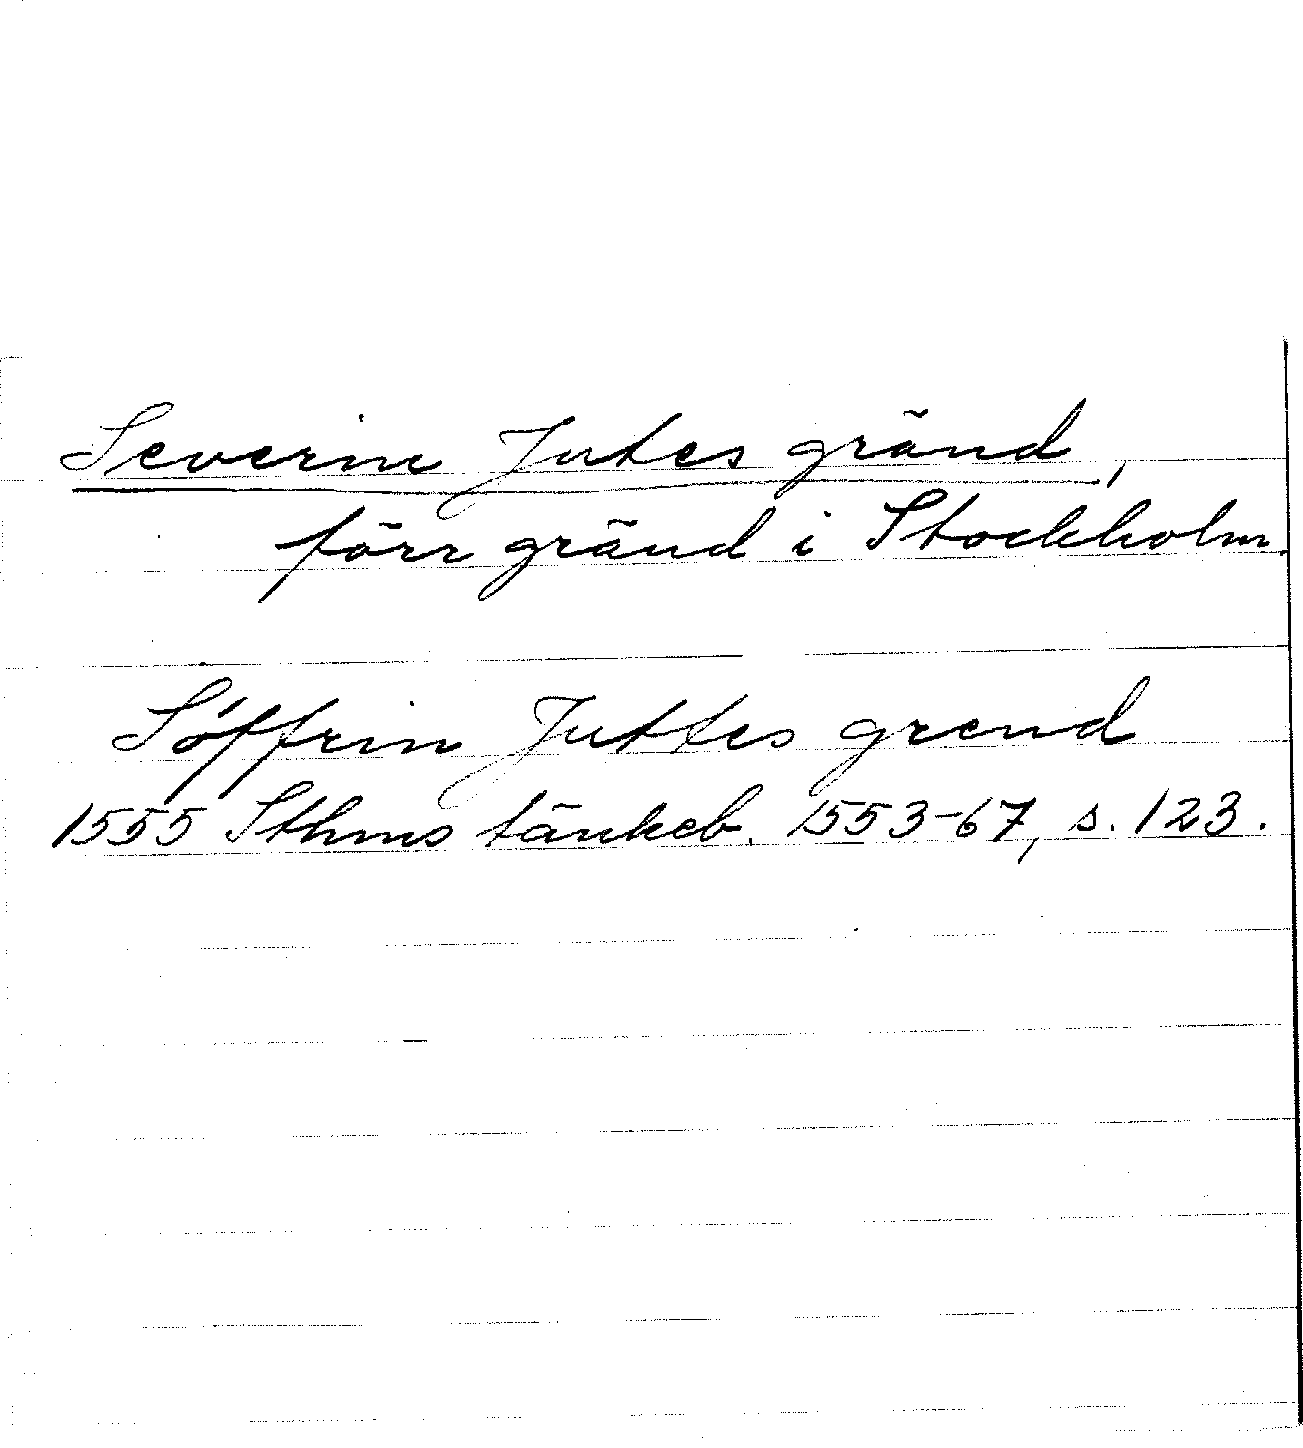 Severin Jutes gränd,
förr gränd i Stockholm.
Söffrin Juttes grend
1555 Sthms tänkeb. 1553-67, s. 123.